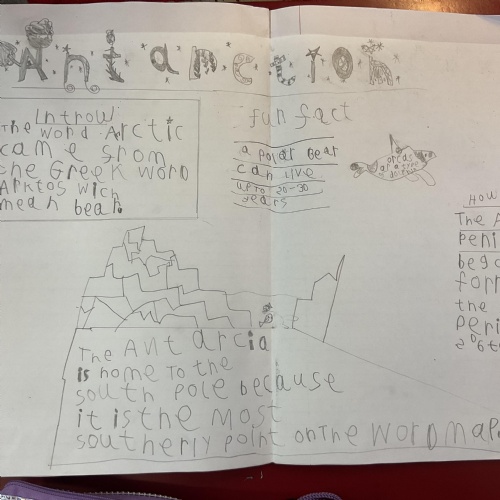 Antarnction
Introw
The word Arctic
came from
the Greek word
Arntos wich
mean bear.
fun fact
a polar bear
can live
up to 20-30
years
orcas
are a type
dolphin
How
The A
peni
bega
form
the
peri
206to
The Antarcia
is home to the
south pole because
it is the most
southerly point on the word map.